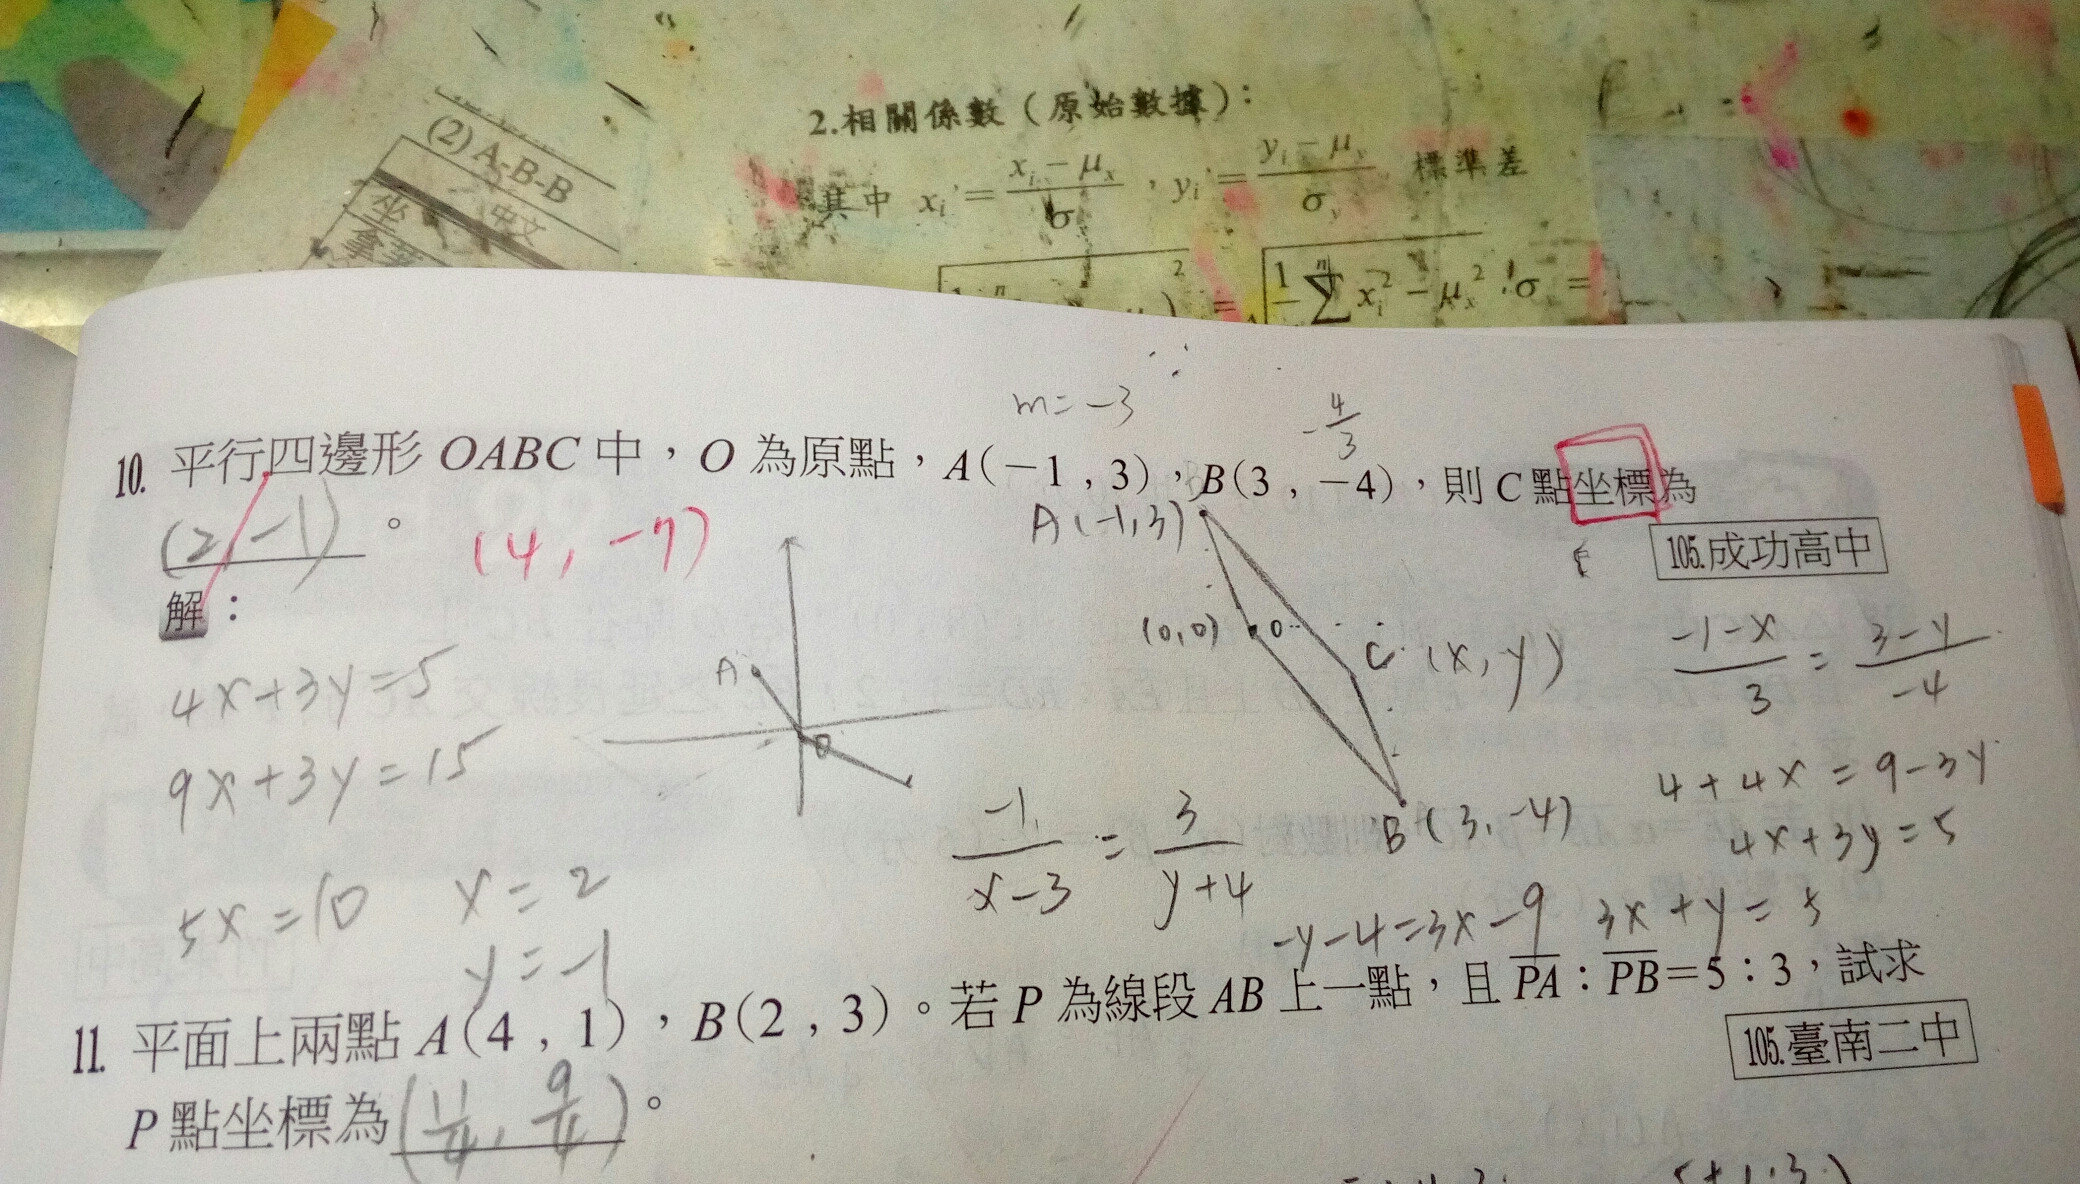 (2) A-B-B
中文
2.相關係數(原始數據):
其中 xᵢ' = (xᵢ − μₓ)/σ , yᵢ' = (yᵢ − μᵧ)/σᵧ 標準差
m = -3
-4/3
10. 平行四邊形 OABC 中，O 為原點，A(−1 , 3)，B(3 , −4)，則 C 點坐標為
(2, -1)。 (4, -7)
105.成功高中
解：
A(-1,3)
(0,0) O
C (x, y)
B (3, -4)
A
O
4x+3y=5
9x+3y=15
5x=10 x=2
y=-1
-1/(x-3) = 3/(y+4)
-y-4=3x-9 3x+y=5
(-1-x)/3 = (3-y)/-4
4+4x=9-3y
4x+3y=5
11. 平面上兩點 A(4 , 1)，B(2 , 3)。若 P 為線段 AB 上一點，且 PA：PB=5：3，試求
P 點坐標為 (11/4, 9/4)。
105.臺南二中